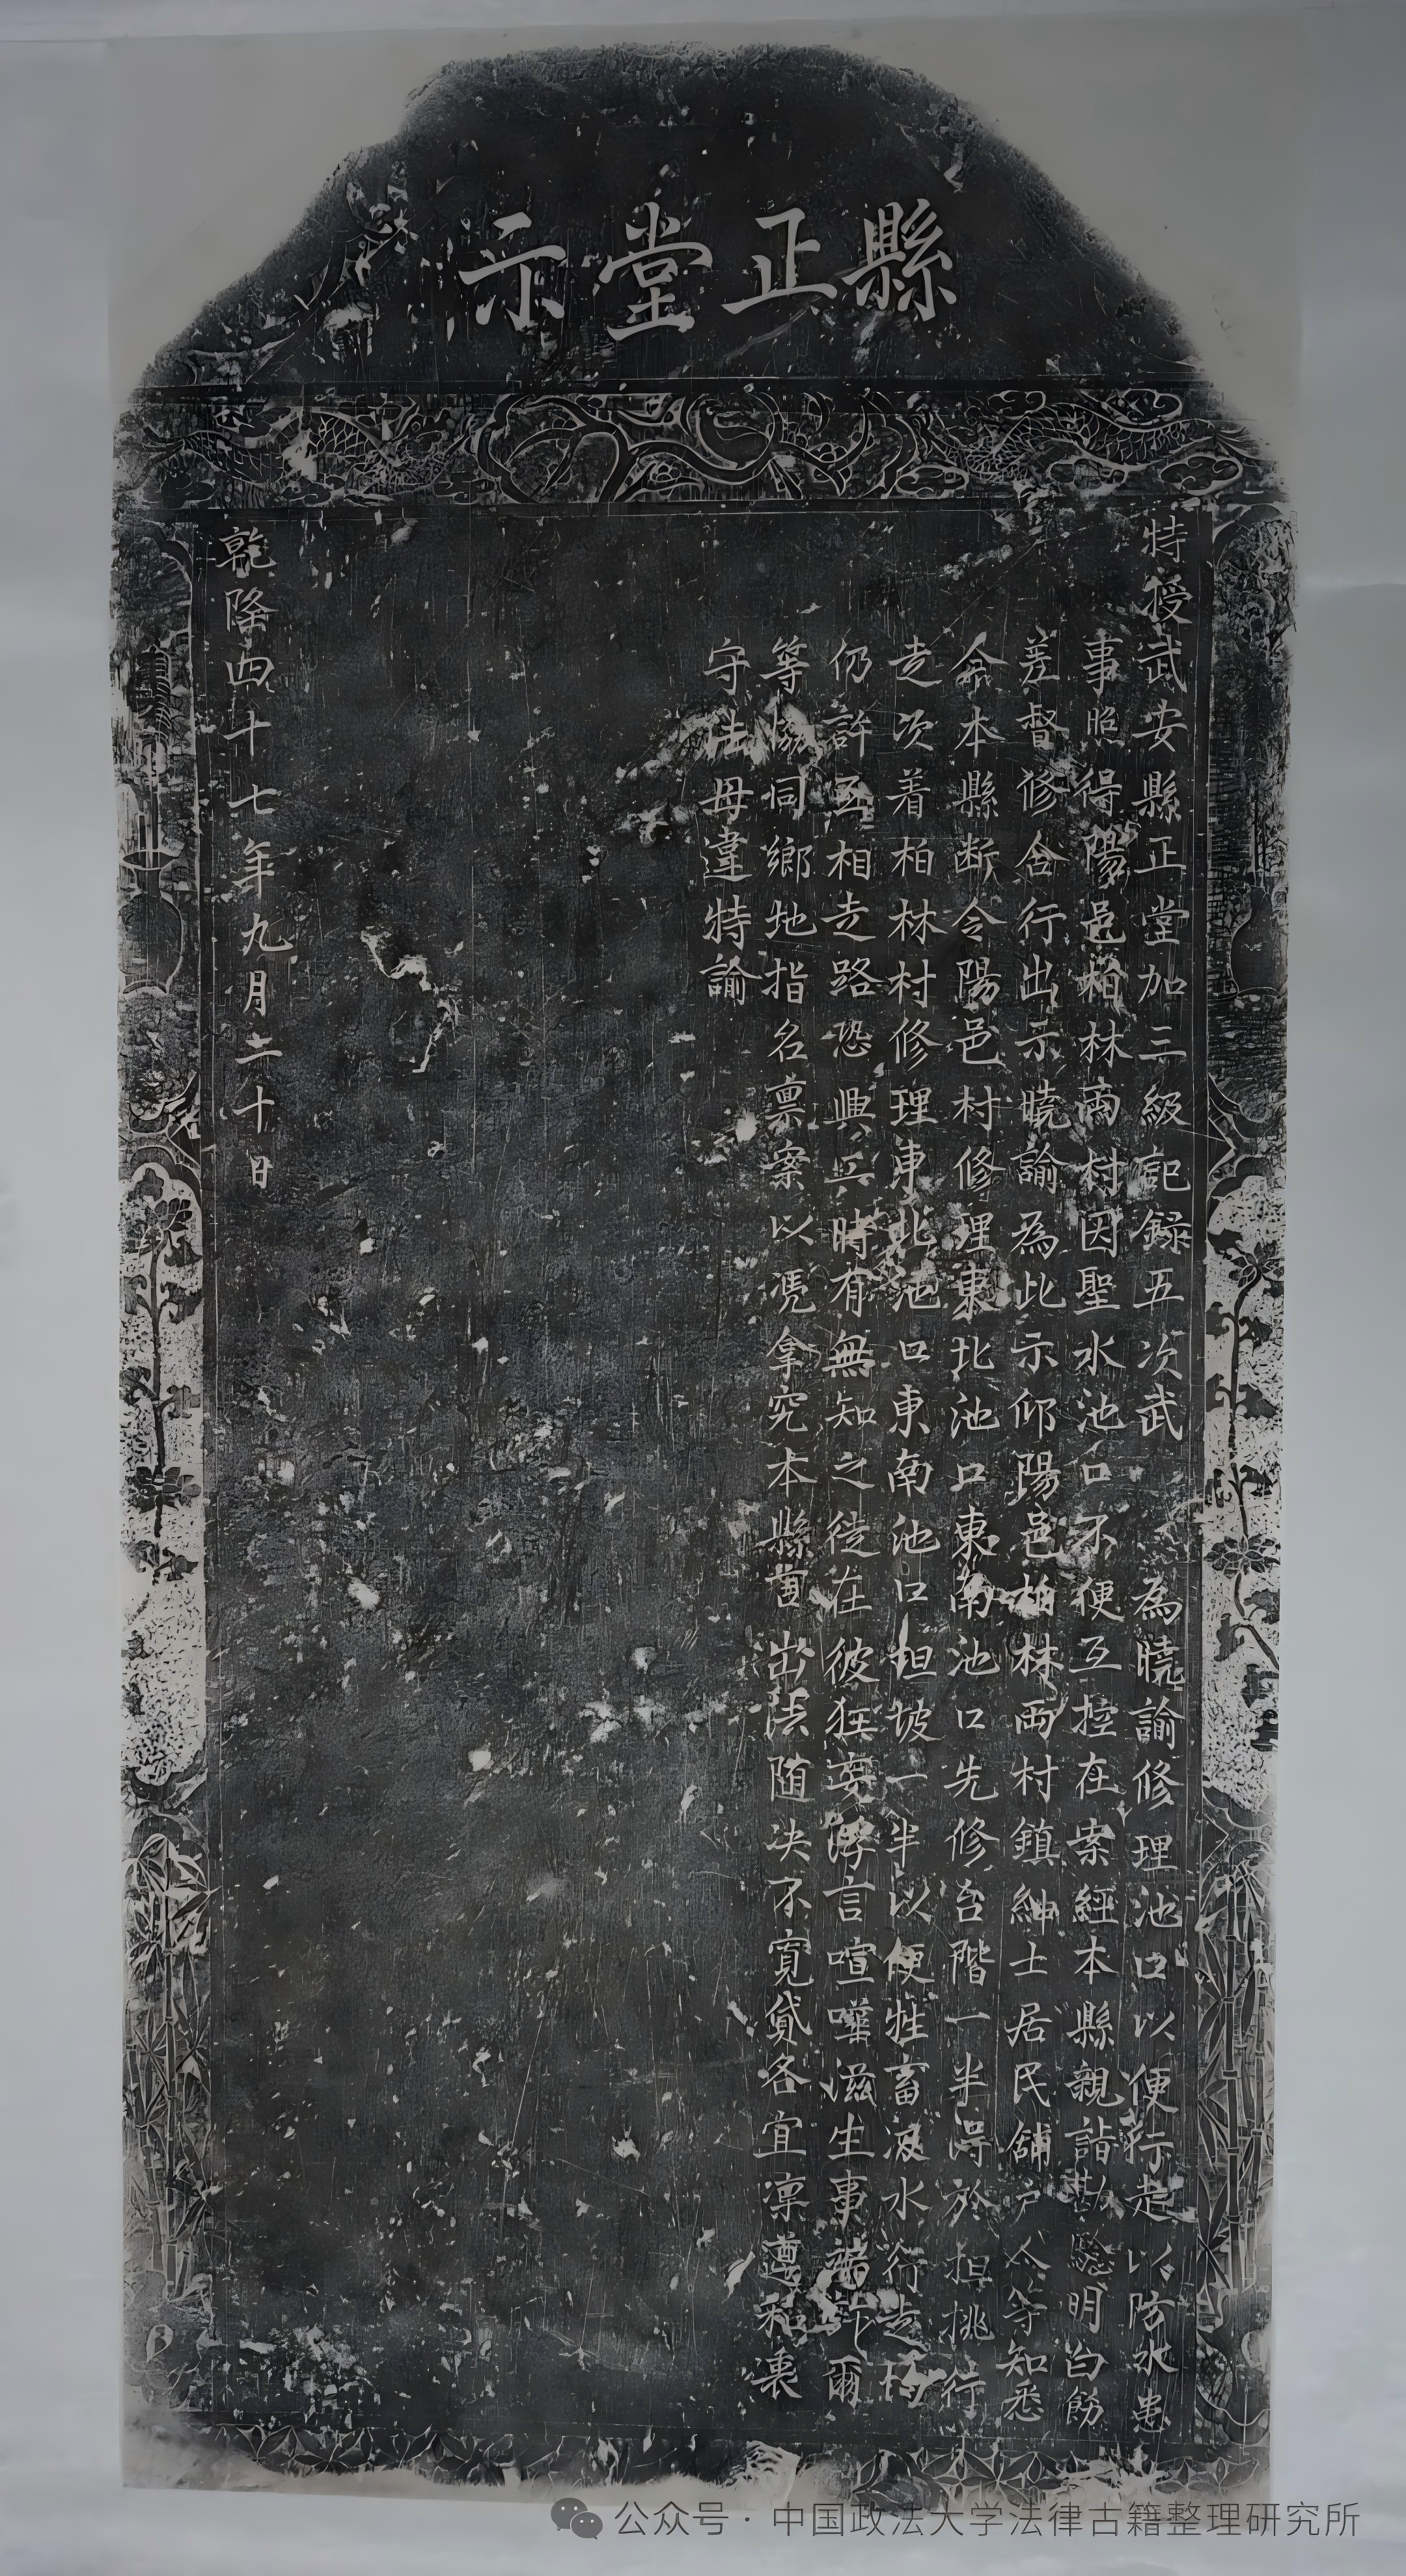 縣正堂示
特授武安縣正堂加三級記録五次武 為曉諭修理池口以便行走以防水患
事照得陽邑柏林兩村因聖水池口不便互控在案經本縣親詣勘驗明白飭
差督修合行出示曉諭為此示仰陽邑柏林兩村鎮紳士居民舖户人等知悉
本縣断令陽邑村修理東北池口東南池口先修台階一半得於担挑行
走次着柏林村修理東北池口東南池口坦坡一半以便牲畜汲水行走
仍許互相走路恐興工時有無知之徒在彼狂妄浮言喧嘩滋生事端許爾
等協同鄉地指名禀案以凭拿究本縣言出法随决不寛貸各宜凛遵和衷
守法毋違特諭
乾隆四十七年九月二十日
公众号 · 中国政法大学法律古籍整理研究所